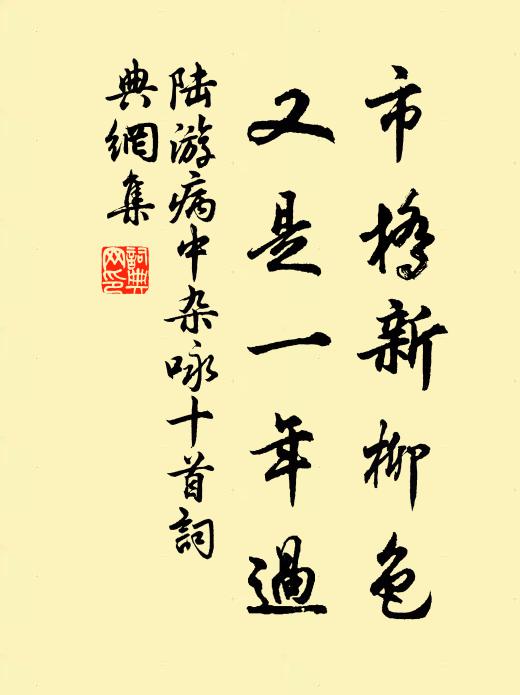 市橋新柳色
又是一年過
陆游病中杂咏十首詞
典網集
詞典网印